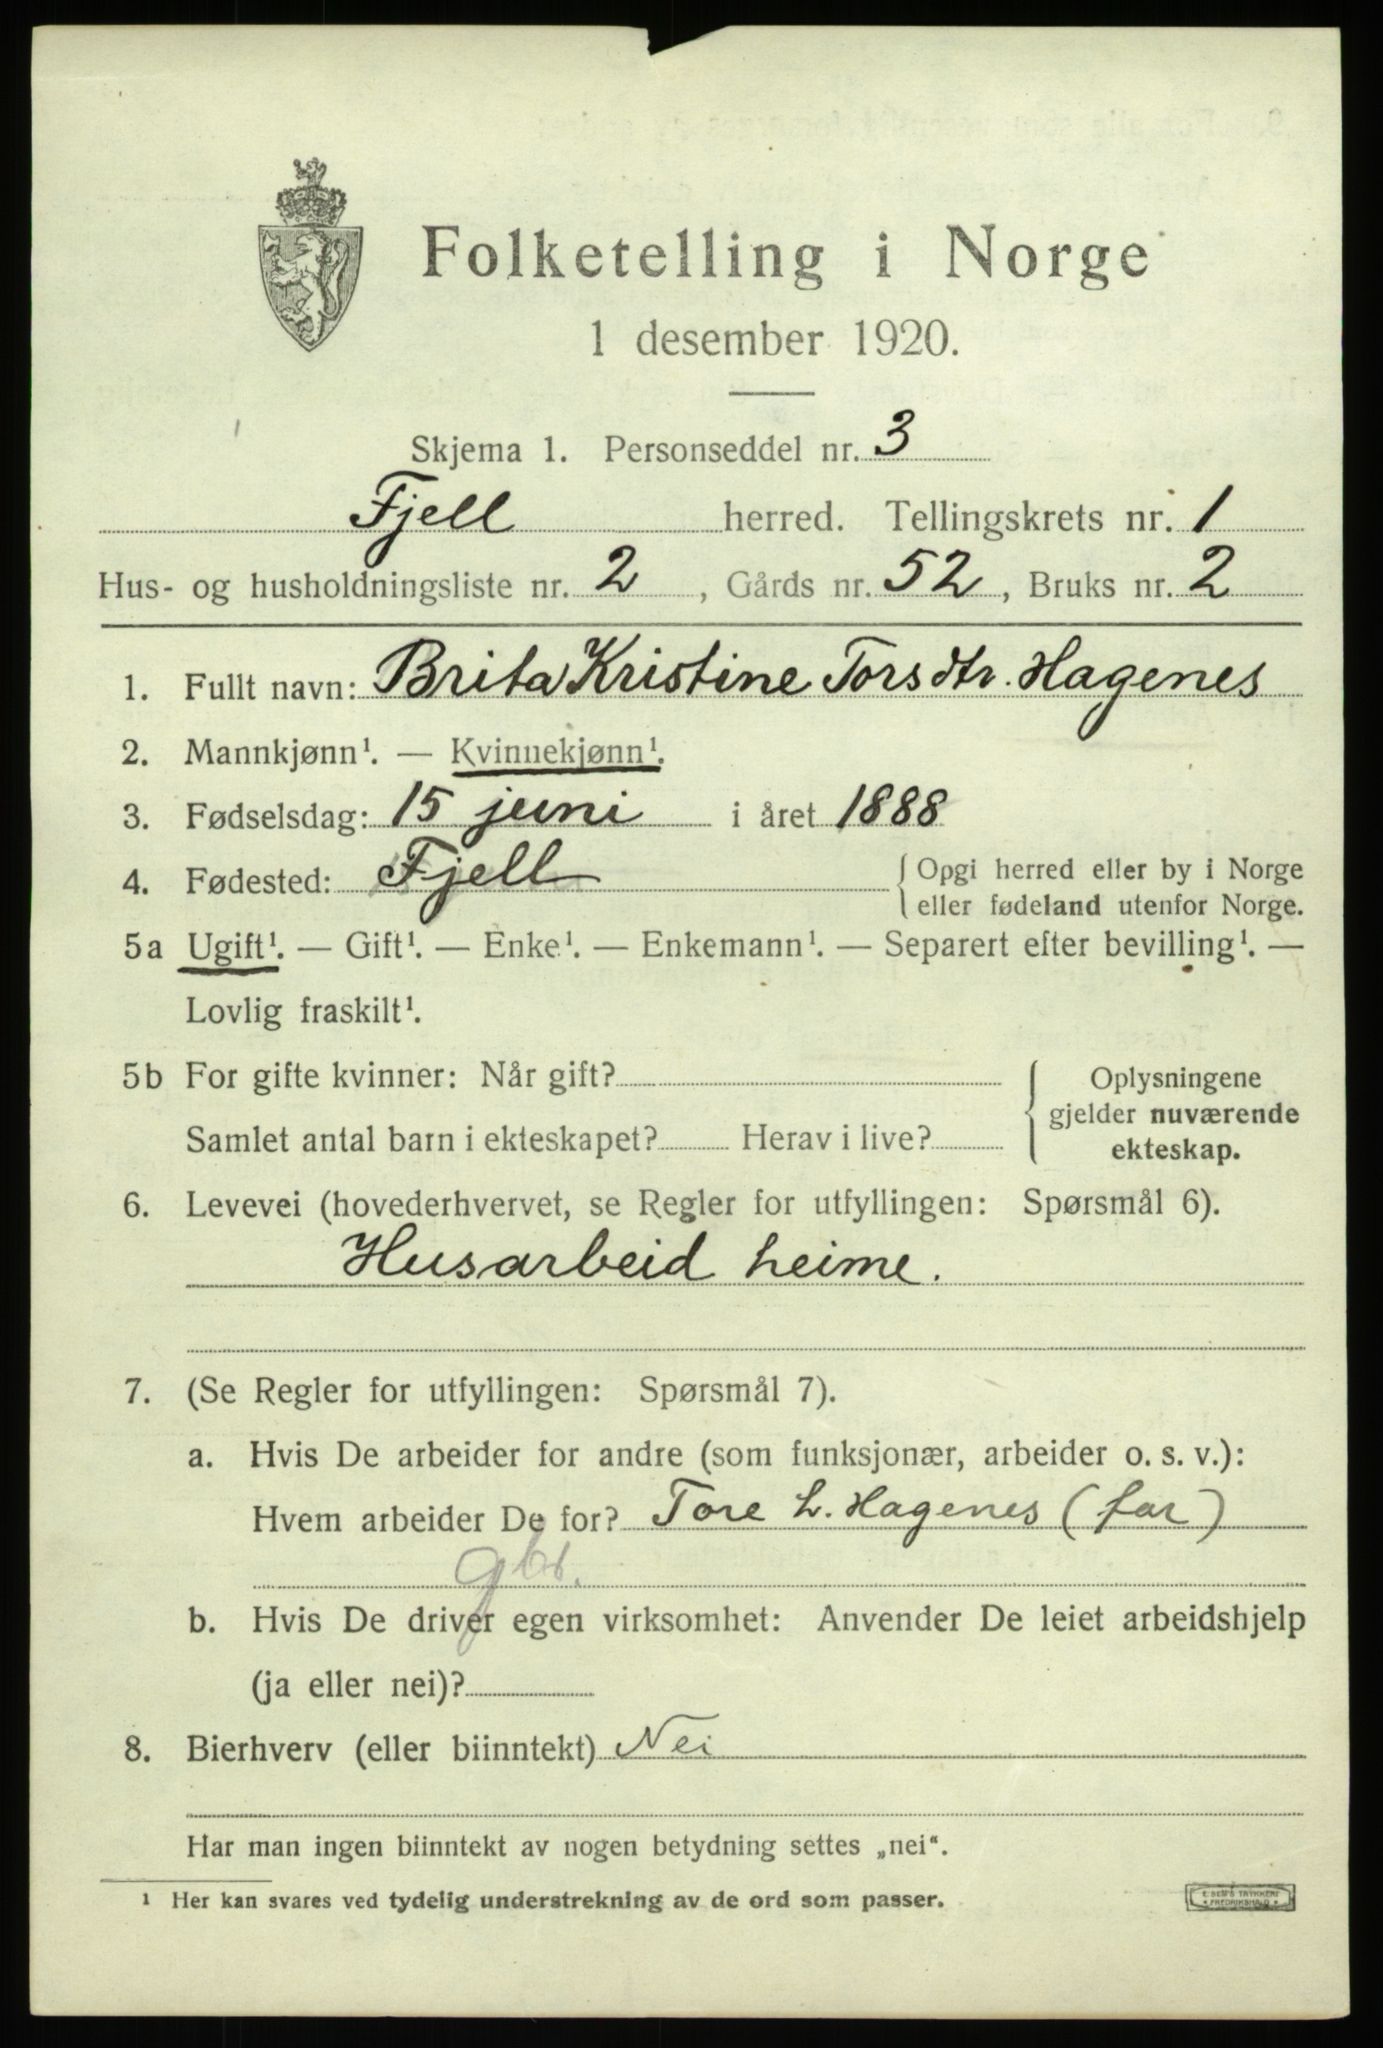 Folketelling i Norge
1 desember 1920.
Skjema 1. Personseddel nr. 3
Fjell herred. Tellingskrets nr. 1
Hus- og husholdningsliste nr. 2, Gårds nr. 52, Bruks nr. 2
1. Fullt navn: Brita Kristine Torsdtr. Hagenes
2. Mannkjønn¹. — Kvinnekjønn¹.
3. Fødselsdag: 15 juni i året 1888
4. Fødested: Fjell { Opgi herred eller by i Norge
eller fødeland utenfor Norge.
5a Ugift¹. — Gift¹. — Enke¹. — Enkemann¹. — Separert efter bevilling¹. —
Lovlig fraskilt¹.
5b For gifte kvinner: Når gift? { Oplysningene
gjelder nuværende
Samlet antal barn i ekteskapet? Herav i live?
ekteskap.
6. Levevei (hovederhvervet, se Regler for utfyllingen: Spørsmål 6).
Husarbeid heime.
7. (Se Regler for utfyllingen: Spørsmål 7).
a. Hvis De arbeider for andre (som funksjonær, arbeider o. s. v.):
Hvem arbeider De for? Tore L. Hagenes (far)
gbr.
b. Hvis De driver egen virksomhet: Anvender De leiet arbeidshjelp
(ja eller nei)?
8. Bierhverv (eller biinntekt) Nei
Har man ingen biinntekt av nogen betydning settes „nei“.
¹ Her kan svares ved tydelig understrekning av de ord som passer.
E. SEM'S TRYKKERI
FREDRIKSHALD